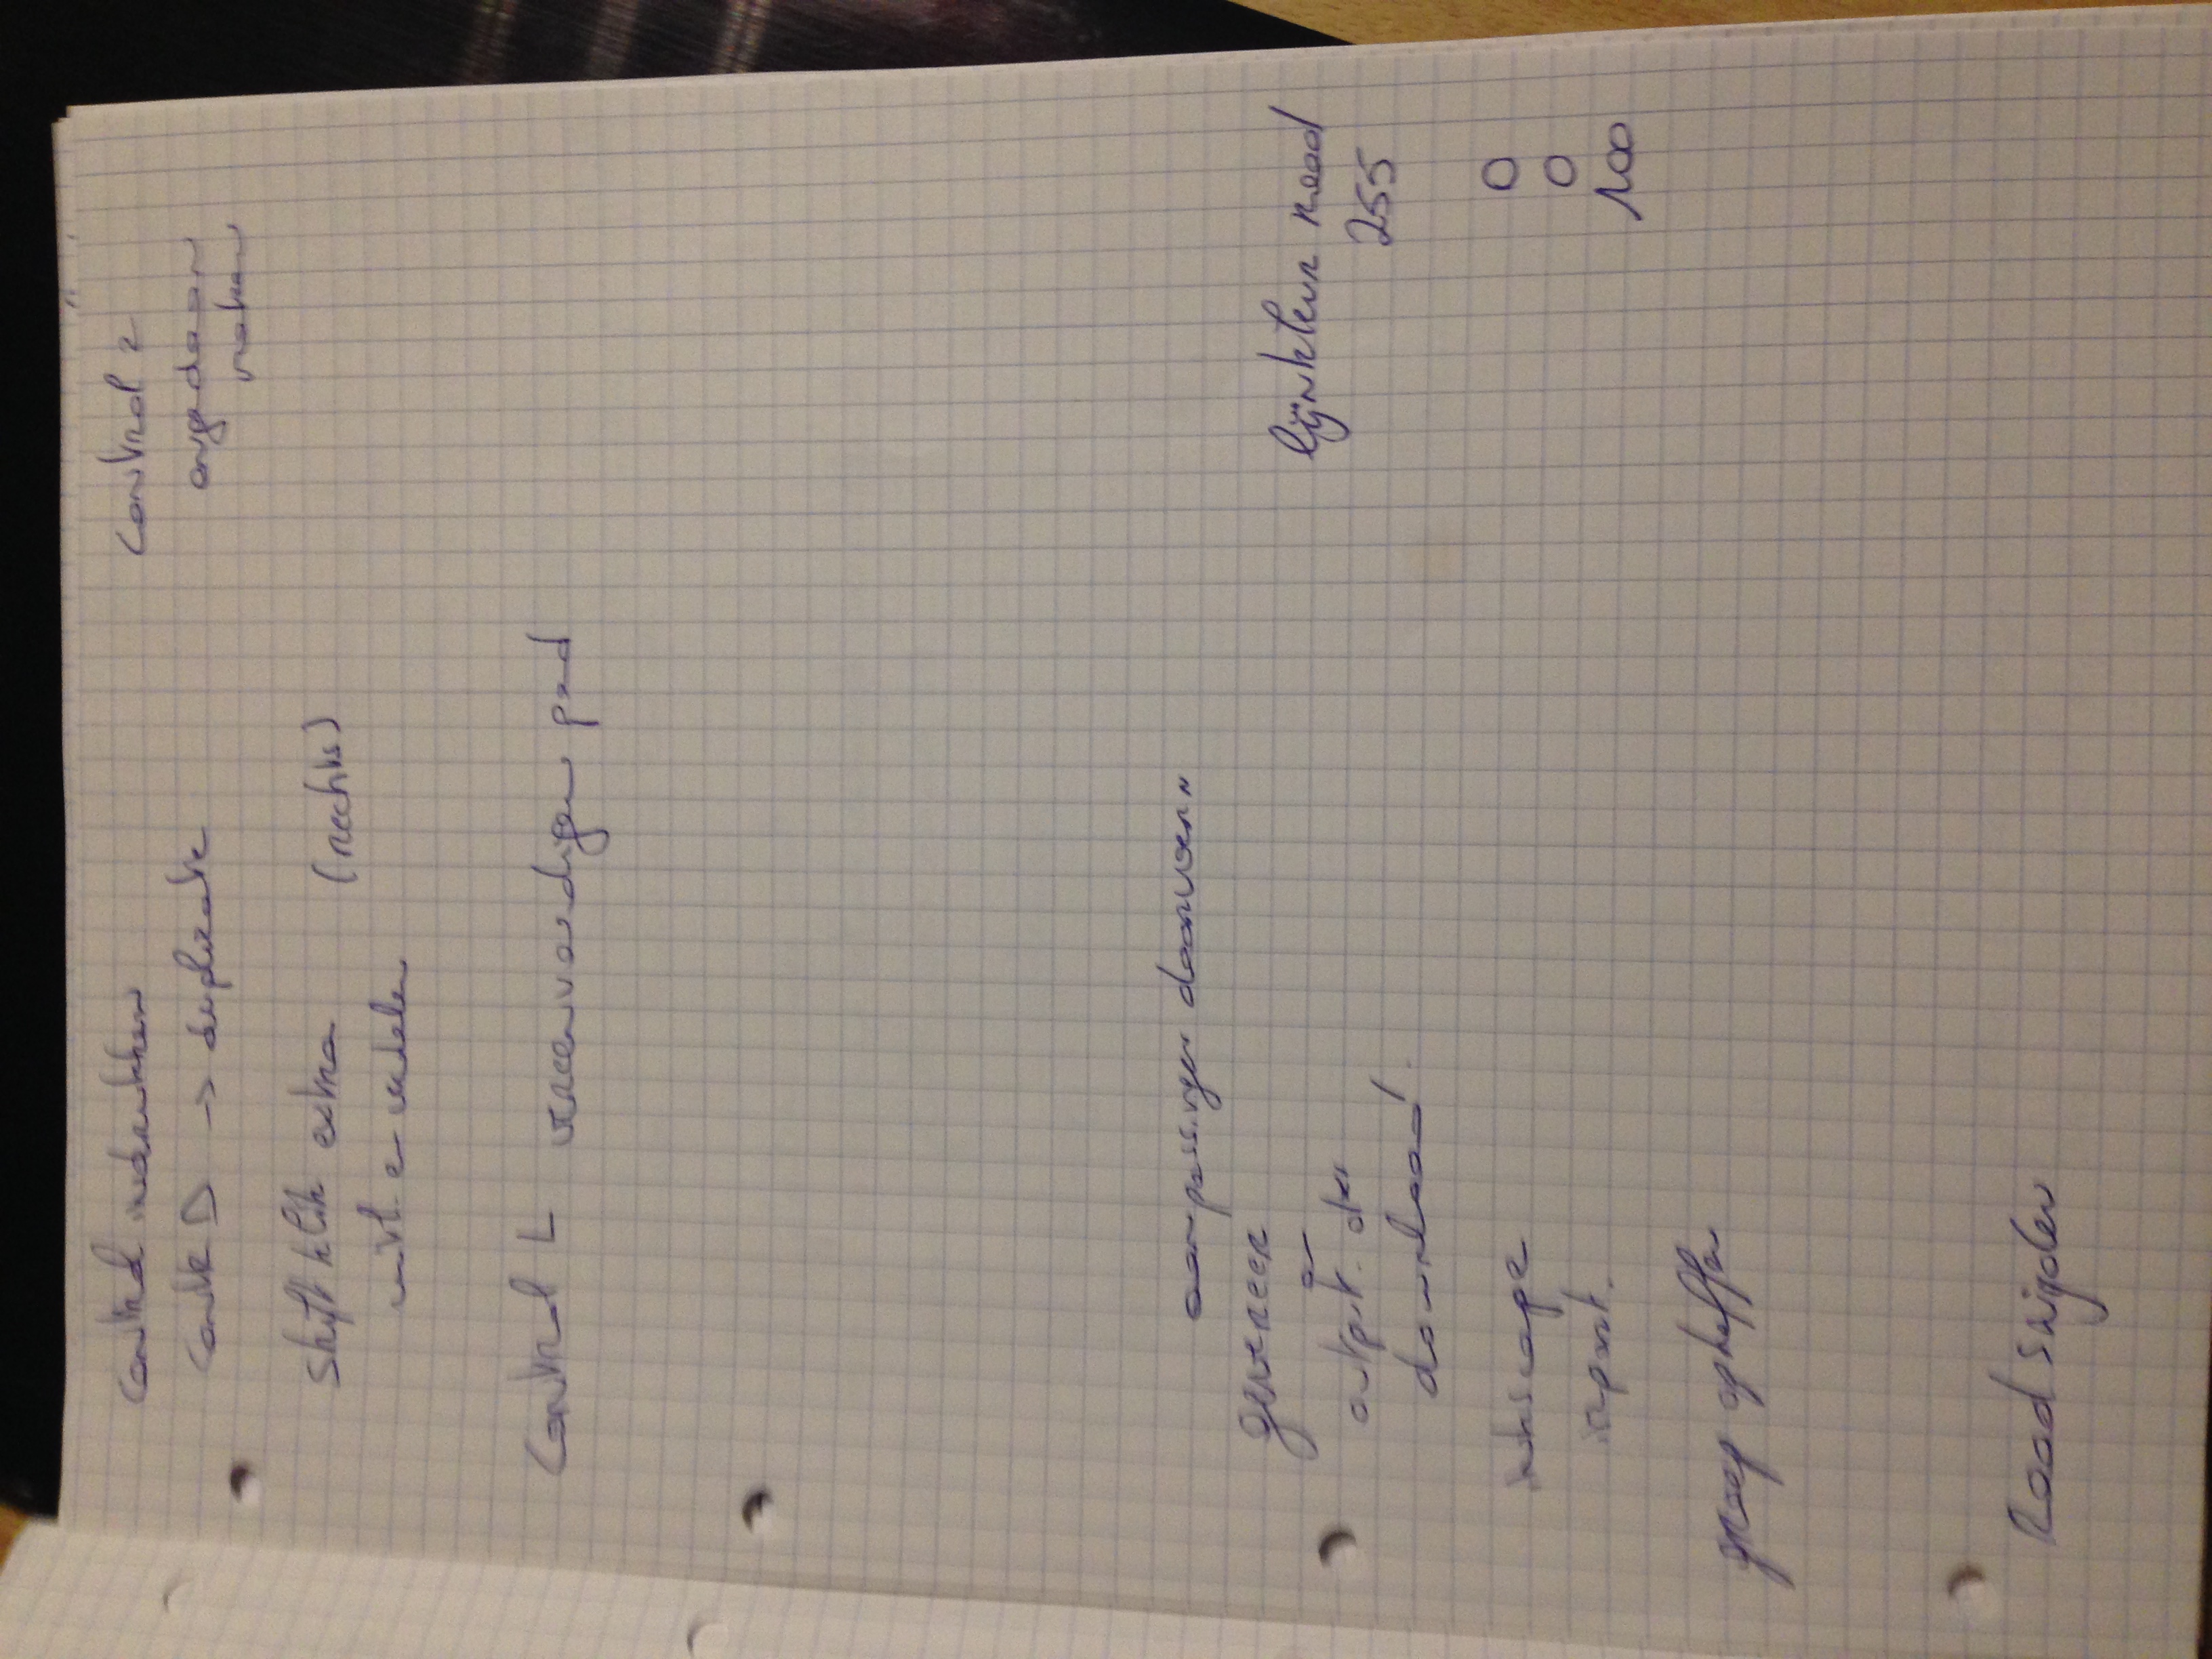 Control indrukken
Control z
Contr D -> duplicatie
ongedaan
maken
Shift klik extra (rechts)
uitl. en verdelen
Control L vereenvoudigen pad
aanpassingen doorvoeren
genereer
en
output.
download
lijnkleur rood
255
inkscape
0
import.
0
100
groep opheffen
Rood snijden